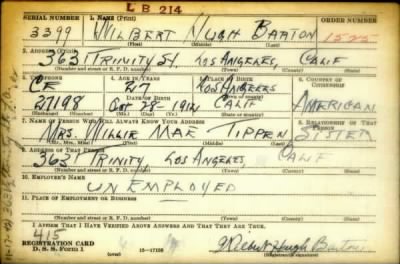 L B 214
SERIAL NUMBER 1. NAME (Print) ORDER NUMBER
3399 WILBERT HUGH BARTON 1525
(First) (Middle) (Last)
2. ADDRESS (Print)
3631 TRINITY St. LOS ANGELES, CALIF
(Number and street or R. F. D. number) (Town) (County) (State)
3. TELEPHONE 4. AGE IN YEARS 5. PLACE OF BIRTH 6. COUNTRY OF CITIZENSHIP
CE 27 LOS ANGELES
DATE OF BIRTH (Town or county)
27198 Oct 28- 1912 CALIF AMERICAN
(Exchange) (Number) (Mo.) (Day) (Yr.) (State or country)
7. NAME OF PERSON WHO WILL ALWAYS KNOW YOUR ADDRESS 8. RELATIONSHIP OF THAT PERSON
MRS. WILLIE MAE TIPPEN SISTER
(Mr., Mrs., Miss) (First) (Middle) (Last)
9. ADDRESS OF THAT PERSON
3631 TRINITY, LOS ANGELES, CALIF
(Number and street or R. F. D. number) (Town) (County) (State)
10. EMPLOYER'S NAME
UNEMPLOYED
11. PLACE OF EMPLOYMENT OR BUSINESS
(Number and street or R. F. D. number) (Town) (County) (State)
I AFFIRM THAT I HAVE VERIFIED ABOVE ANSWERS AND THAT THEY ARE TRUE.
415
REGISTRATION CARD
D. S. S. Form 1 (over) 16-17105 Wilbert Hugh Barton
(Registrant's signature)